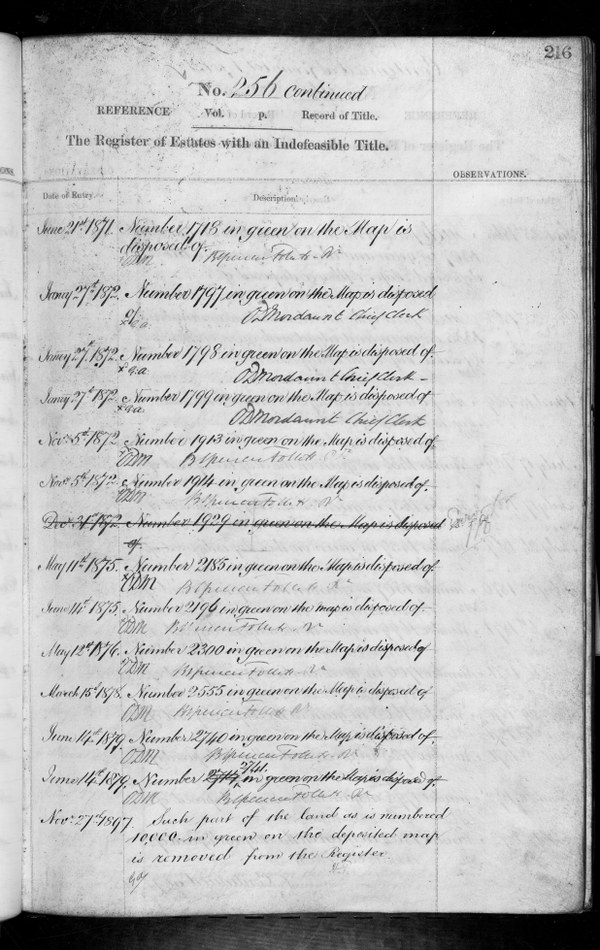 216
No. 256 continued
REFERENCE Vol. p. Record of Title.
The Register of Estates with an Indefeasible Title.
OBSERVATIONS.
Date of Entry. Description.
June 21st 1871. Number 1718 in green on the Map is
disposed of.
ODM
Jany 27th 1872. Number 1797 in green on the Map is disposed
of
ODMordaunt Chief Clerk
Jany 27th 1872. Number 1798 in green on the Map is disposed of
ODMordaunt Chief Clerk
Jany 27th 1872. Number 1799 in green on the Map is disposed of
ODMordaunt Chief Clerk
Novr 5th 1872 Number 1913 in green on the Map is disposed of
ODM
Novr 5th 1872. Number 1914 in green on the Map is disposed of.
ODM
Decr 31st 1872. Number 1929 in green on the Map is disposed
of.
May 11th 1875. Number 2185 in green on the Map is disposed of
ODM
June 14th 1875. Number 2196 in green on the map is disposed of
ODM
May 12th 1876. Number 2300 in green on the Map is disposed of
ODM
March 15th 1878. Number 2555 in green on the Map is disposed of
ODM
June 14th 1879. Number 2740 in green on the Map is disposed of.
ODM
2741
June 14th 1879. Number in green on the Map is disposed of.
ODM
Novr 27th 1897 Such part of the land as is numbered
10,000 in green on the deposited map
is removed from the Register